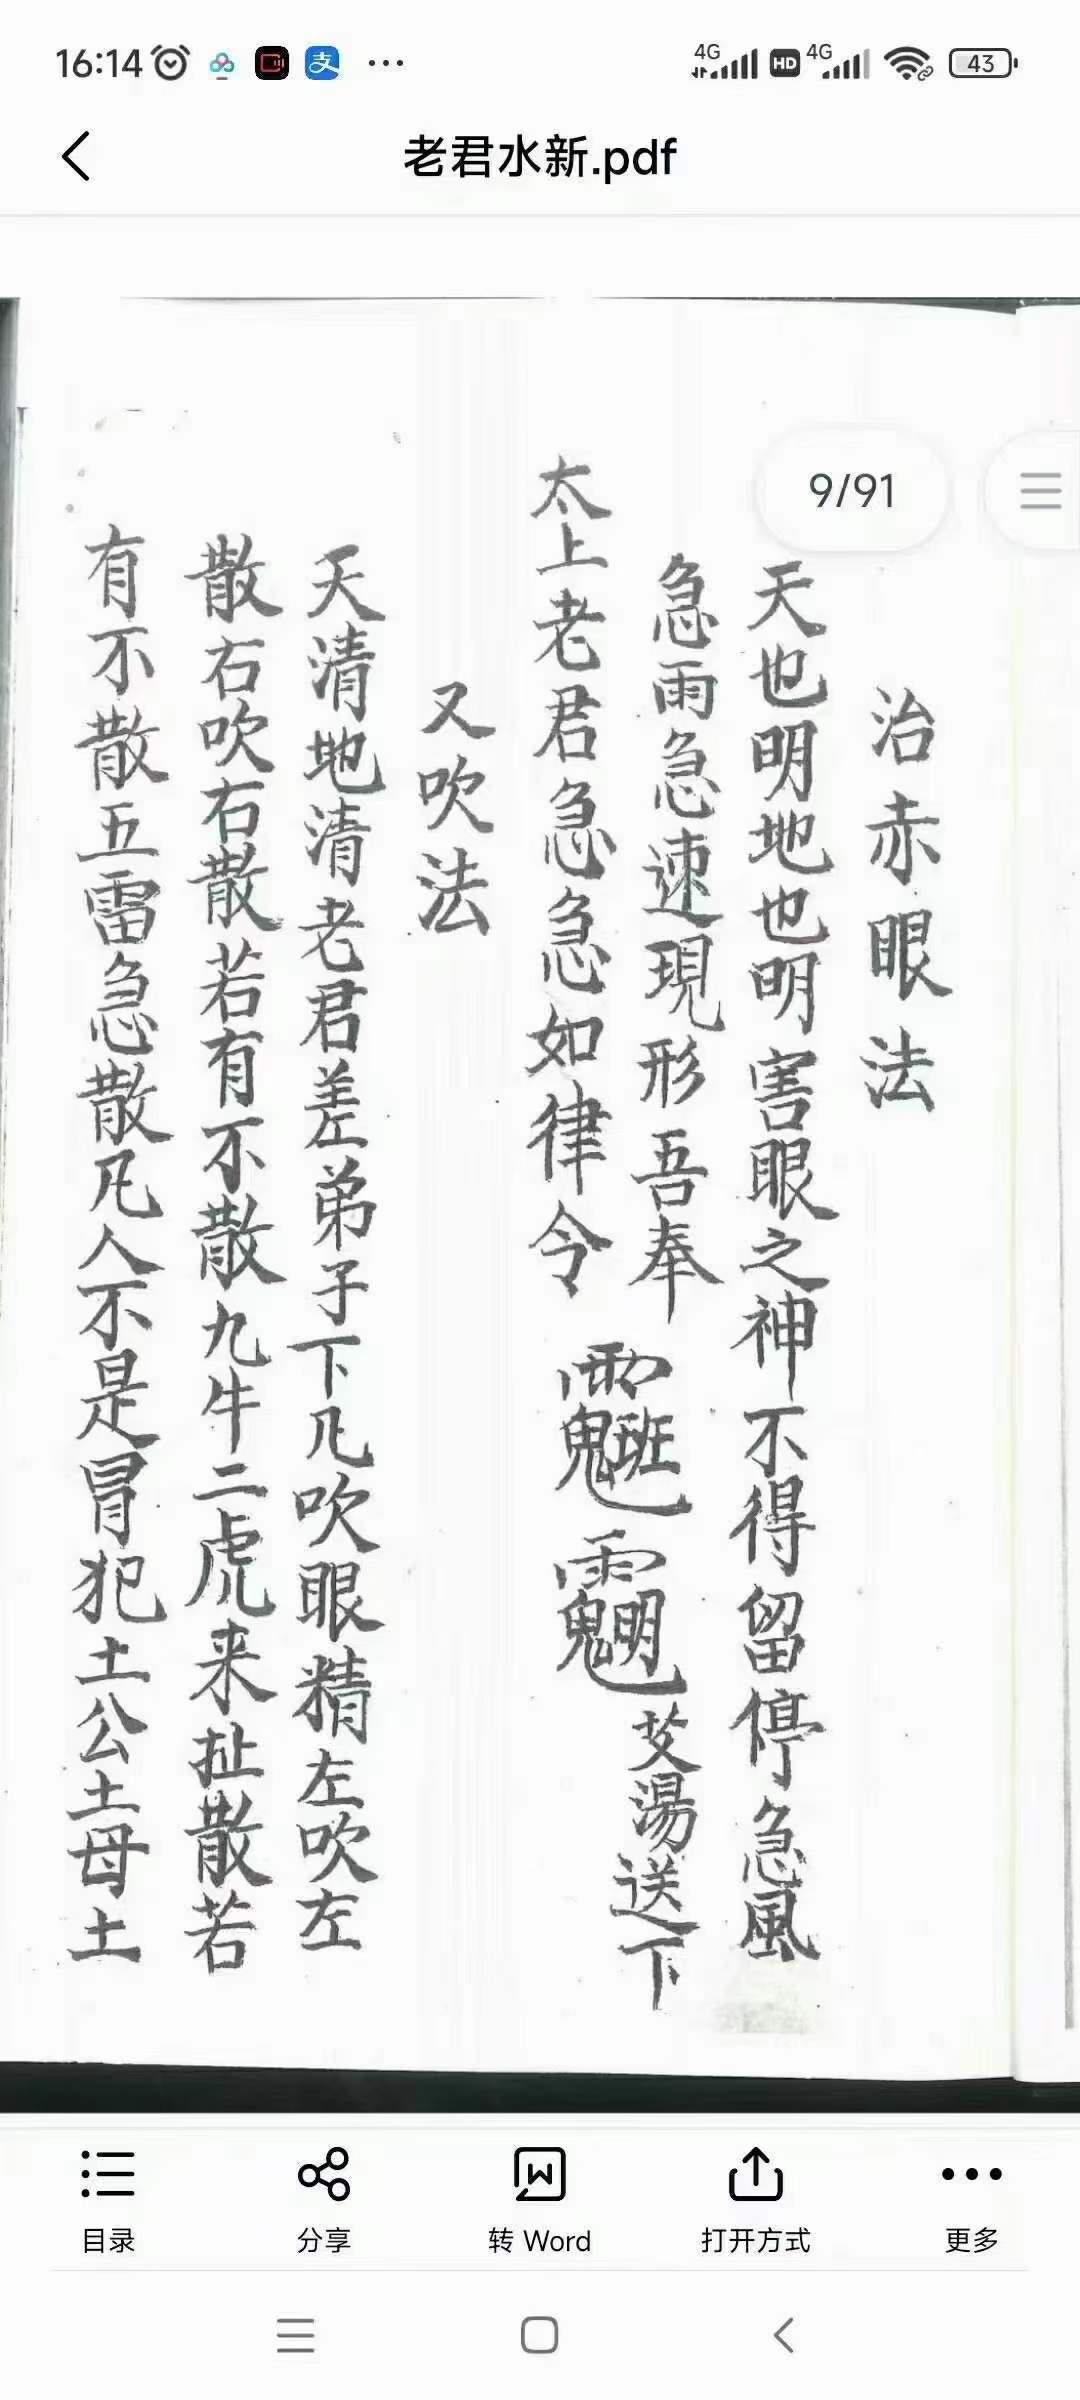 16:14
4G HD 4G 43
老君水新.pdf
9/91
治赤眼法
天也明地也明害眼之神不得留停急風
急雨急速現形吾奉
太上老君急急如律令
艾湯送下
又吹法
天清地清老君差弟子下凡吹眼精左吹左
散右吹右散若有不散九牛二虎来扯散若
有不散五雷急散凡人不是冒犯土公土母土
目录
分享
转 Word
打开方式
更多